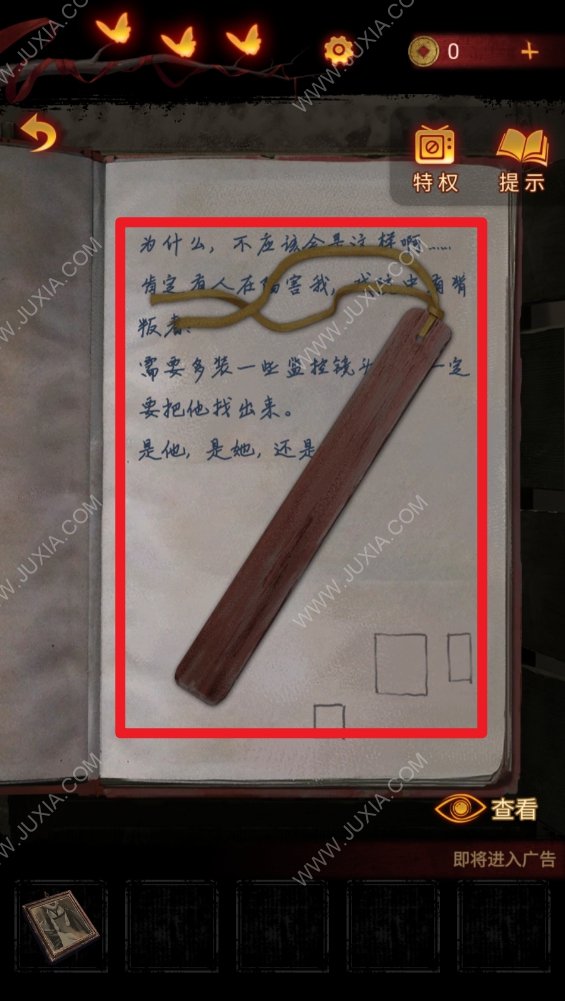 0
特权
提示
为什么，不应该会是这样啊……
肯定有人在害我，有背
叛者.
需要多装一些监控镜头一定
要把他找出来。
是他，是她，还是
查看
即将进入广告
WWW.JUXIA.COM